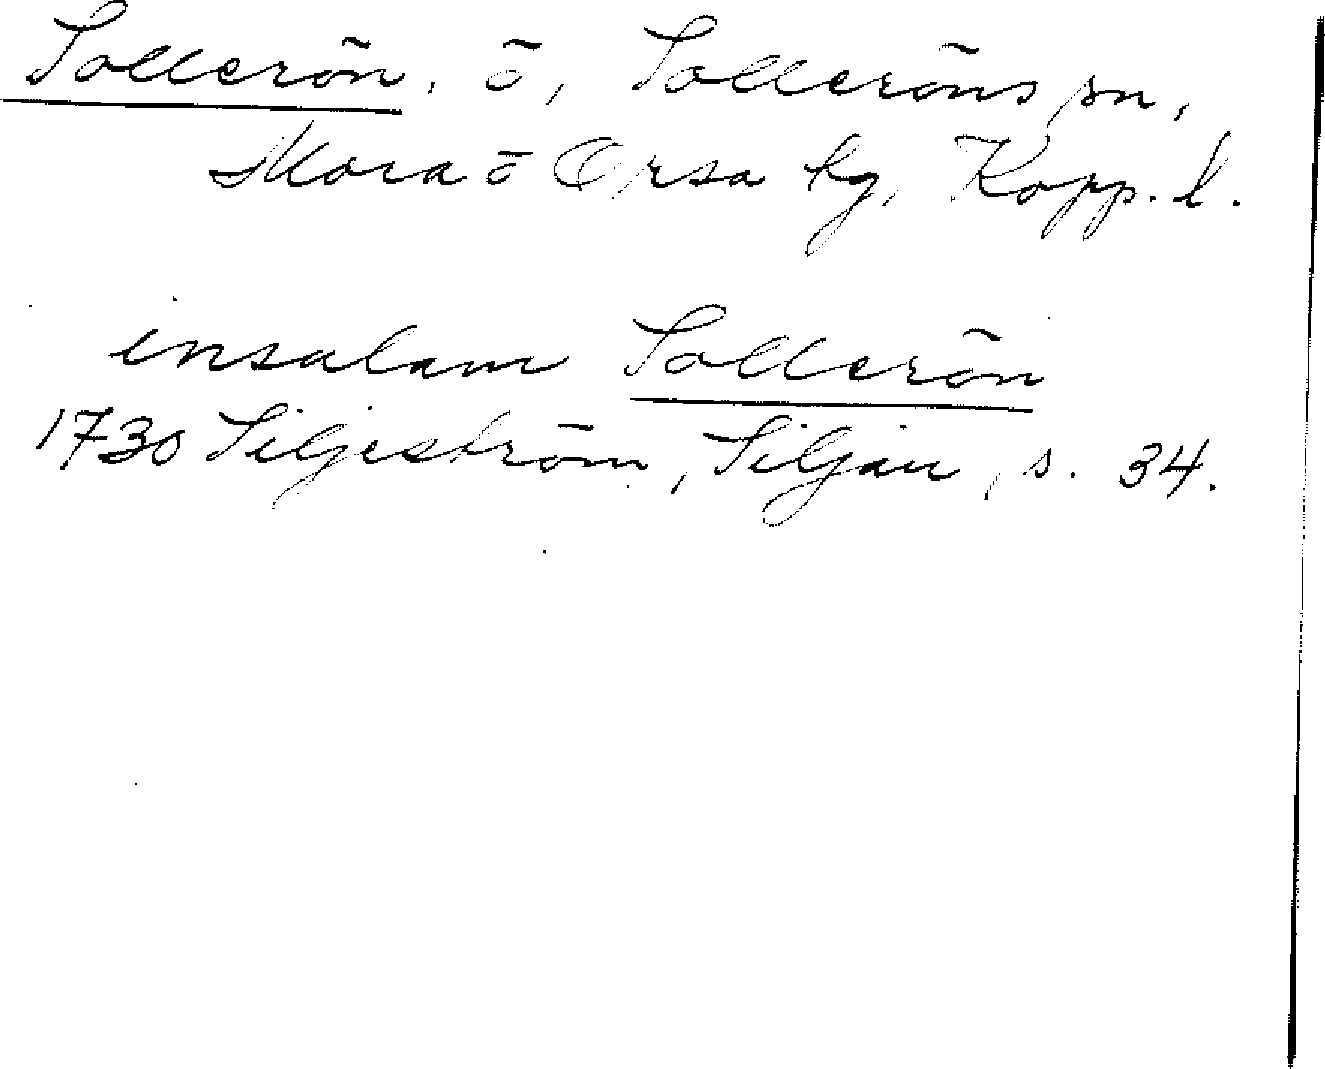 Sollerön, ö, Solleröns sn,
Mora o Orsa tg, Kopp. l.
insulam Sollerön
1730 Siljeström, Siljan, s. 34.